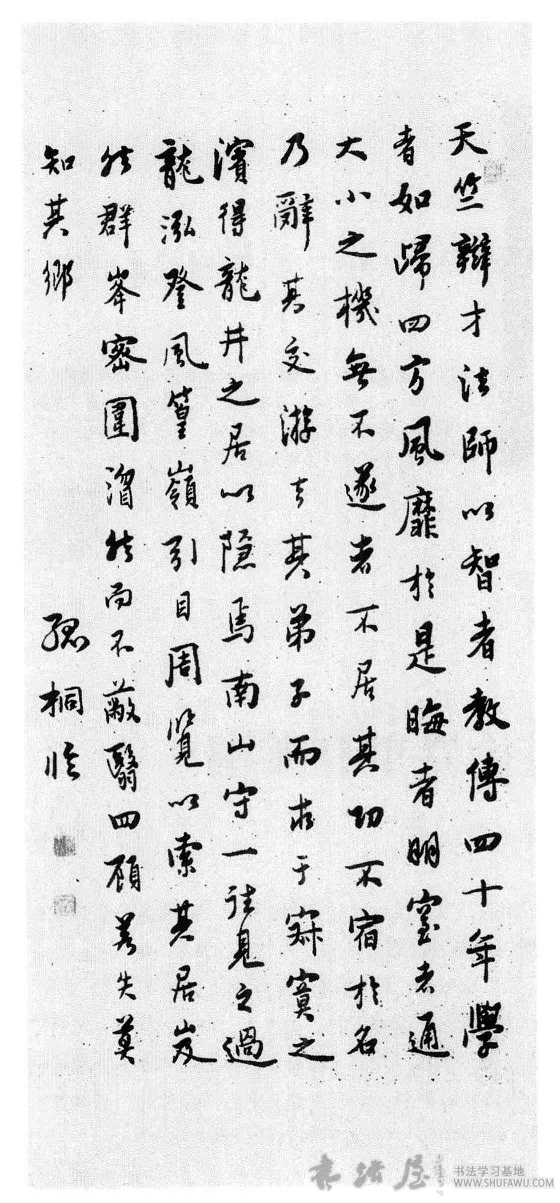 天竺辯才法師以智者教傳四十年學
者如歸四方風靡於是晦者明窒者通
大小之機無不遂者不居其功不宿於名
乃辭其交游去其弟子而求于寂寞之
濱得龍井之居以隱焉南山守一往見之過
龍泓登風篁嶺引目周覽以索其居岌
然群峯密圍溜然而不蔽翳四顧若失莫
知其鄉
孤桐臨
書法屋
书法学习基地
WWW.SHUFAWU.COM